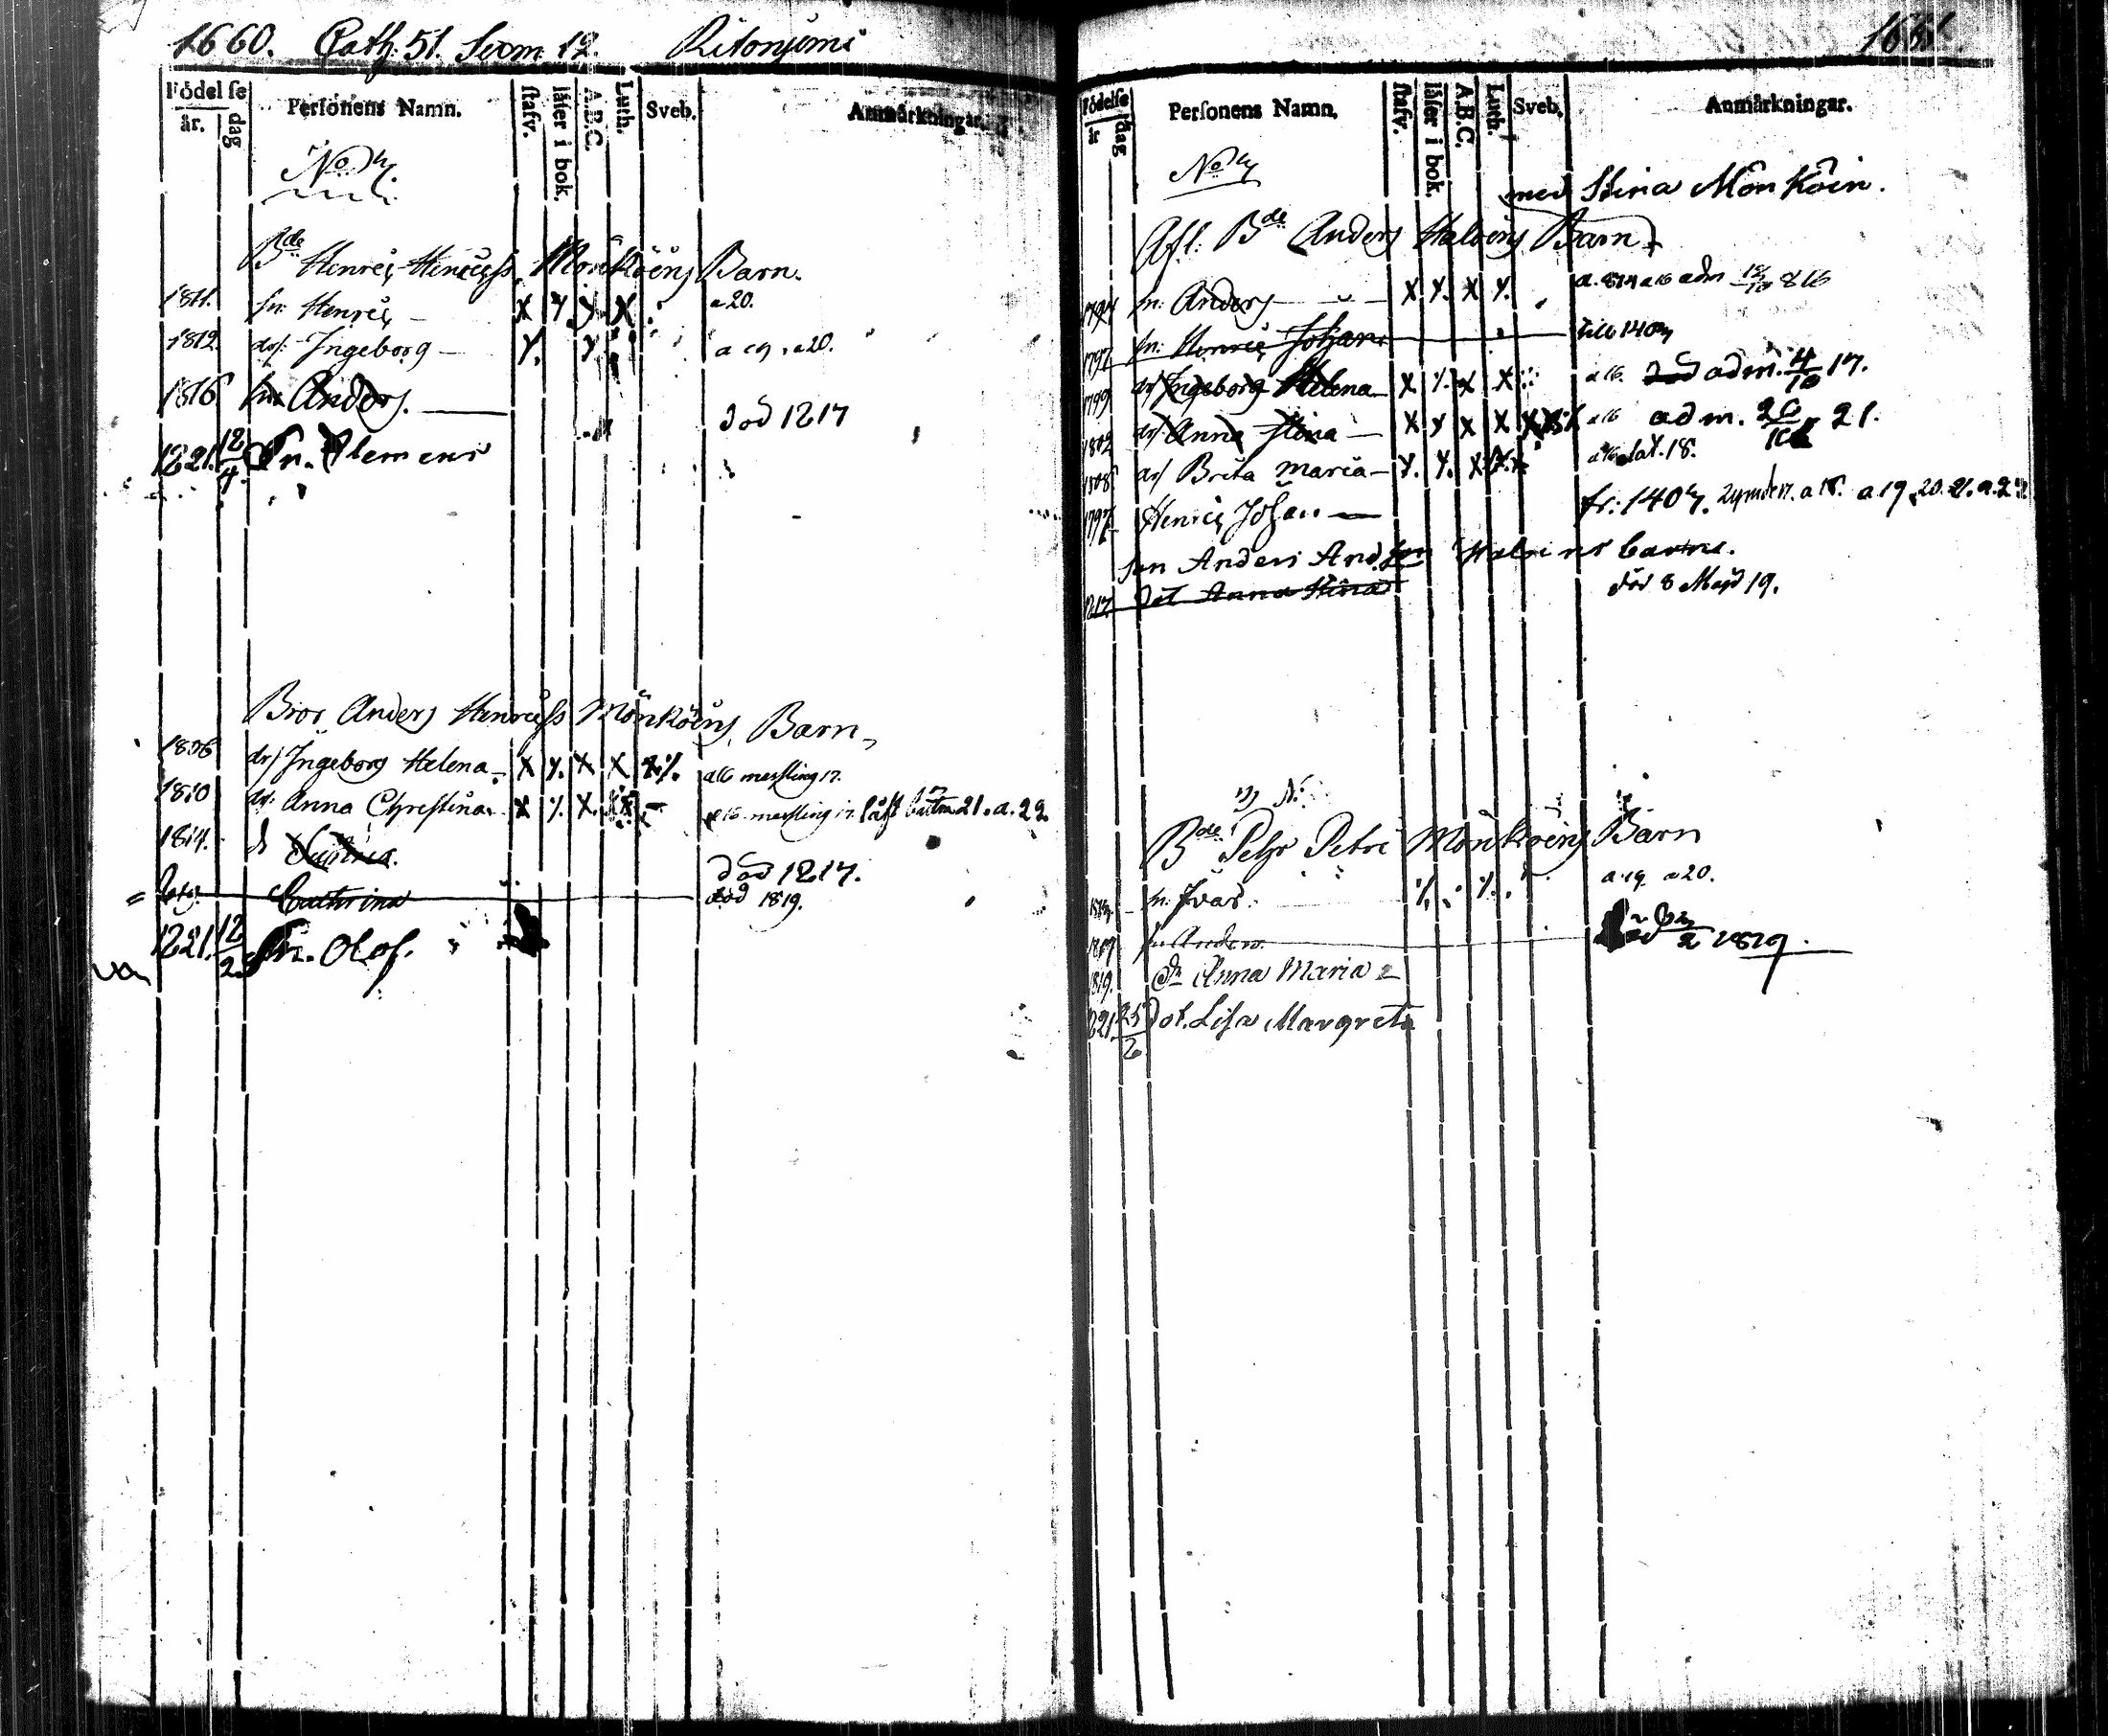 1660. Cath. 51. Suom. 12. Ritoniemi
Födelse
år. dag
Personens Namn.
stafv.
låser i bok.
A.B.C.
Luth.
Sveb.
Anmärkningar.
No 4.
Bde Henric Henricss. Mönköins Barn.
1811. sn: Henric — a 20.
1812. dr: Ingeborg — a 19. a 20.
1816 sn Anders. död 1817
1821. 12/4 Sn. Clemens
Bror Anders Henricss Mönköins Barn
1806 dr Ingeborg Helena a16 messling 17.
1810 dr: Anna Christina a16 messling 17. 21. a. 22
1814. d död 1817.
Cathrina död 1819.
1821. 12/2 Sn. Olof.
1661
Födelse
år dag
Personens Namn.
stafv.
låser i bok.
A.B.C.
Luth.
Sveb.
Anmärkningar.
No 4
med Stina Mönköin.
Afl: Bde Anders Halvins Barn
1794 sn: Anders a16 adm 816
1797 sn: Henric Johan till 1407
1799 dr Ingeborg Helena a16. död adm. 4/10 17.
1802 dr Anna Stina a16 adm. 21.
1808 dr Brita Maria
1797 Henric Johan — fr: 1407. a 18. a 19. 20. 21. a. 22
son Anders And.son Halvins barn.
1817 dot Anna Stina död 8 Maj 19.
Bde Pehr Petri Mönköins Barn
sn. Ivar. a 19. a 20.
sn Anders. 1819.
1819. dr Anna Maria
1821 25/6 dot. Lisa Margreta